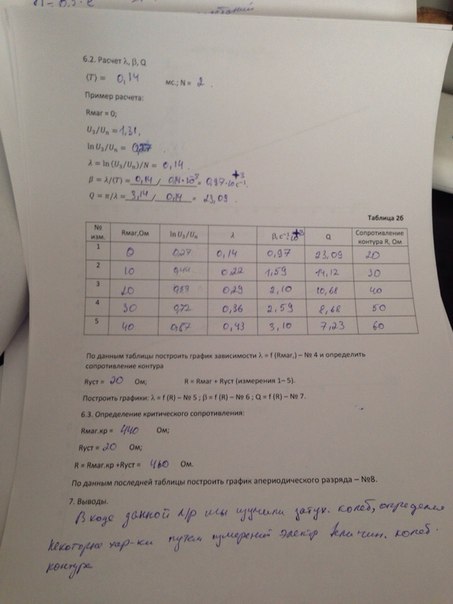 6.2. Расчет λ, β, Q
⟨T⟩ = 0,14 мс.; N = 2 .
Пример расчета:
Rмаг = 0;
U₂/Uₙ = 1,31.
ln U₂/Uₙ = 0,27
λ = ln (U₂/Uₙ)/N = 0,14.
β = λ/⟨T⟩ = 0,14 / 0,14·10⁻³ = 0,97·10⁺³ с⁻¹.
Q = π/λ = 3,14 / 0,14 = 23,09.
Таблица 2б
№ изм. Rмаг,Ом ln U₂/Uₙ λ β, с⁻¹·10⁺³ Q Сопротивление контура R, Ом
1 0 0,27 0,14 0,97 23,09 20
2 10 0,44 0,22 1,59 14,12 30
3 20 0,29 2,10 10,68 40
4 30 0,72 0,36 2,59 8,68 50
5 40 0,87 0,43 3,10 7,23 60
По данным таблицы построить график зависимости λ = f (Rмаг,) – № 4 и определить
сопротивление контура
Rуст = 20 Ом; R = Rмаг + Rуст (измерения 1– 5).
Построить графики: λ = f (R) – № 5 ; β = f (R) – № 6 ; Q = f (R) – № 7.
6.3. Определение критического сопротивления:
Rмаг.кр = 440 Ом;
Rуст = 20 Ом;
R = Rмаг.кр +Rуст = 460 Ом.
По данным последней таблицы построить график апериодического разряда – №8.
7. Выводы.
В ходе данной л/р мы изучили затух. колеб, определив
некоторые хар-ки путем измерений электр величин. колеб.
контура